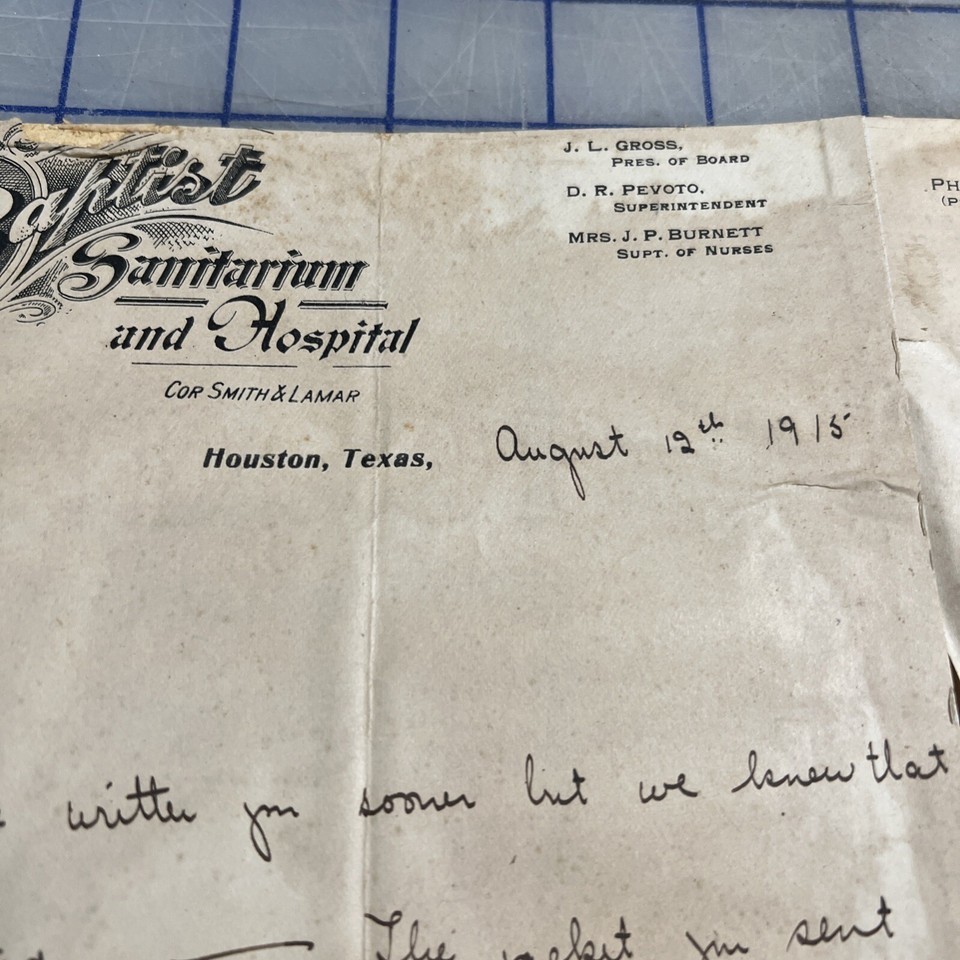 Baptist
Sanitarium
and Hospital
COR SMITH & LAMAR
J. L. GROSS,
PRES. OF BOARD
D. R. PEVOTO,
SUPERINTENDENT
MRS. J. P. BURNETT
SUPT. OF NURSES
PH
(P
Houston, Texas, August 12th 1915
written you sooner but we knew that
The you sent